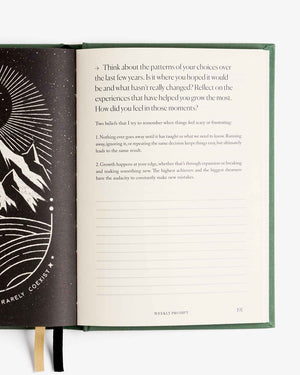 → Think about the patterns of your choices over
the last few years. Is it where you hoped it would
be and what hasn't really changed? Reflect on the
experiences that have helped you grow the most.
How did you feel in those moments?
Two beliefs that I try to remember when things feel scary or frustrating:
1. Nothing ever goes away until it has taught us what we need to know. Running
away, ignoring it, or repeating the same decision keeps things easy, but ultimately
leads to the same result.
2. Growth happens at your edge, whether that's through expansion or breaking
and making something new. The highest achievers and the biggest dreamers
have the audacity to constantly make new mistakes.
RARELY COEXIST
WEEKLY PROMPT